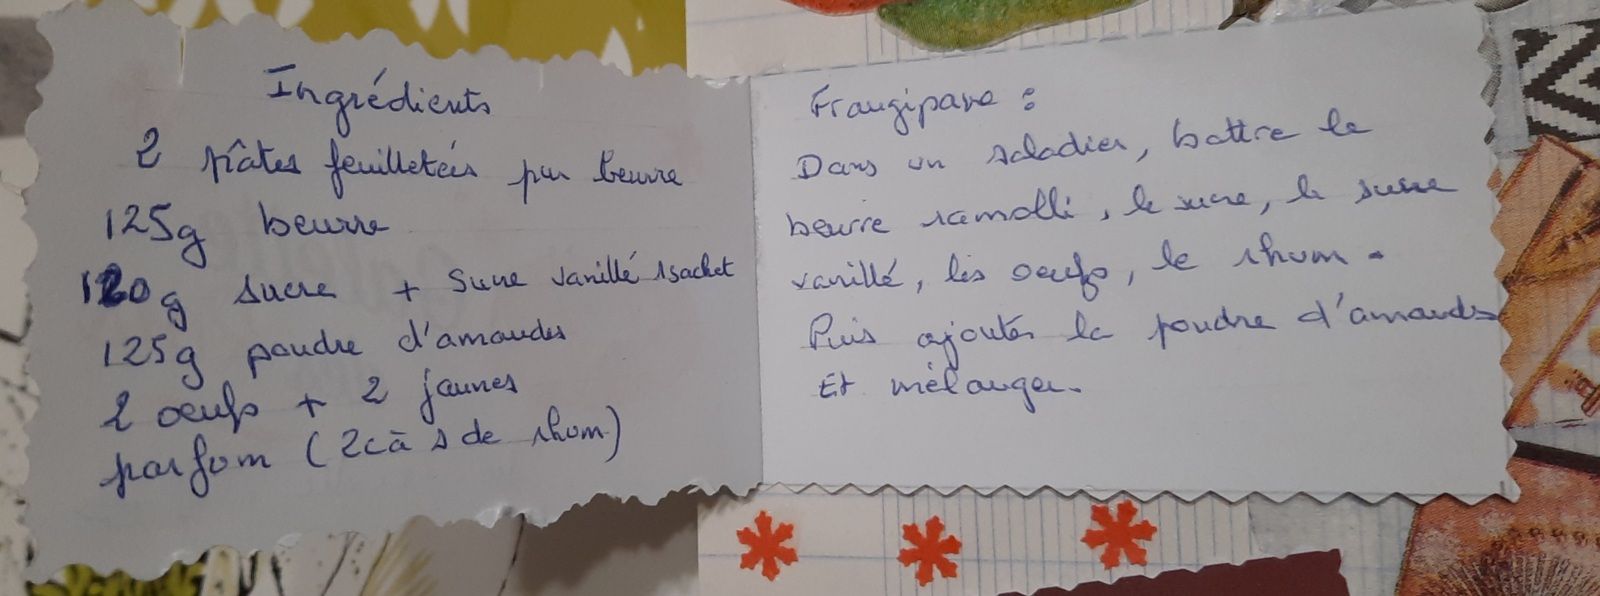 Ingrédients
2 pâtes feuilletées pur beurre
125g beurre
120g sucre + sucre vanillé 1sachet
125g poudre d'amandes
2 oeufs + 2 jaunes
parfum (2 c à s de rhum)
Frangipane :
Dans un saladier, battre le
beurre ramolli, le sucre, le sucre
vanillé, les oeufs, le rhum.
Puis ajouter la poudre d'amandes
Et mélanger.